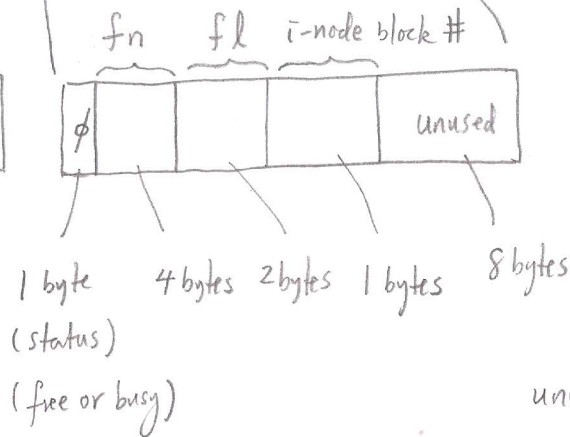 fn fl i-node block #
φ unused
1 byte 4 bytes 2 bytes 1 bytes 8 bytes
(status)
(free or busy)
un